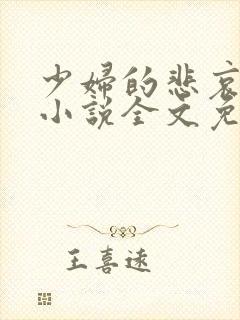 少婦的悲哀
小說全文免
王喜遠